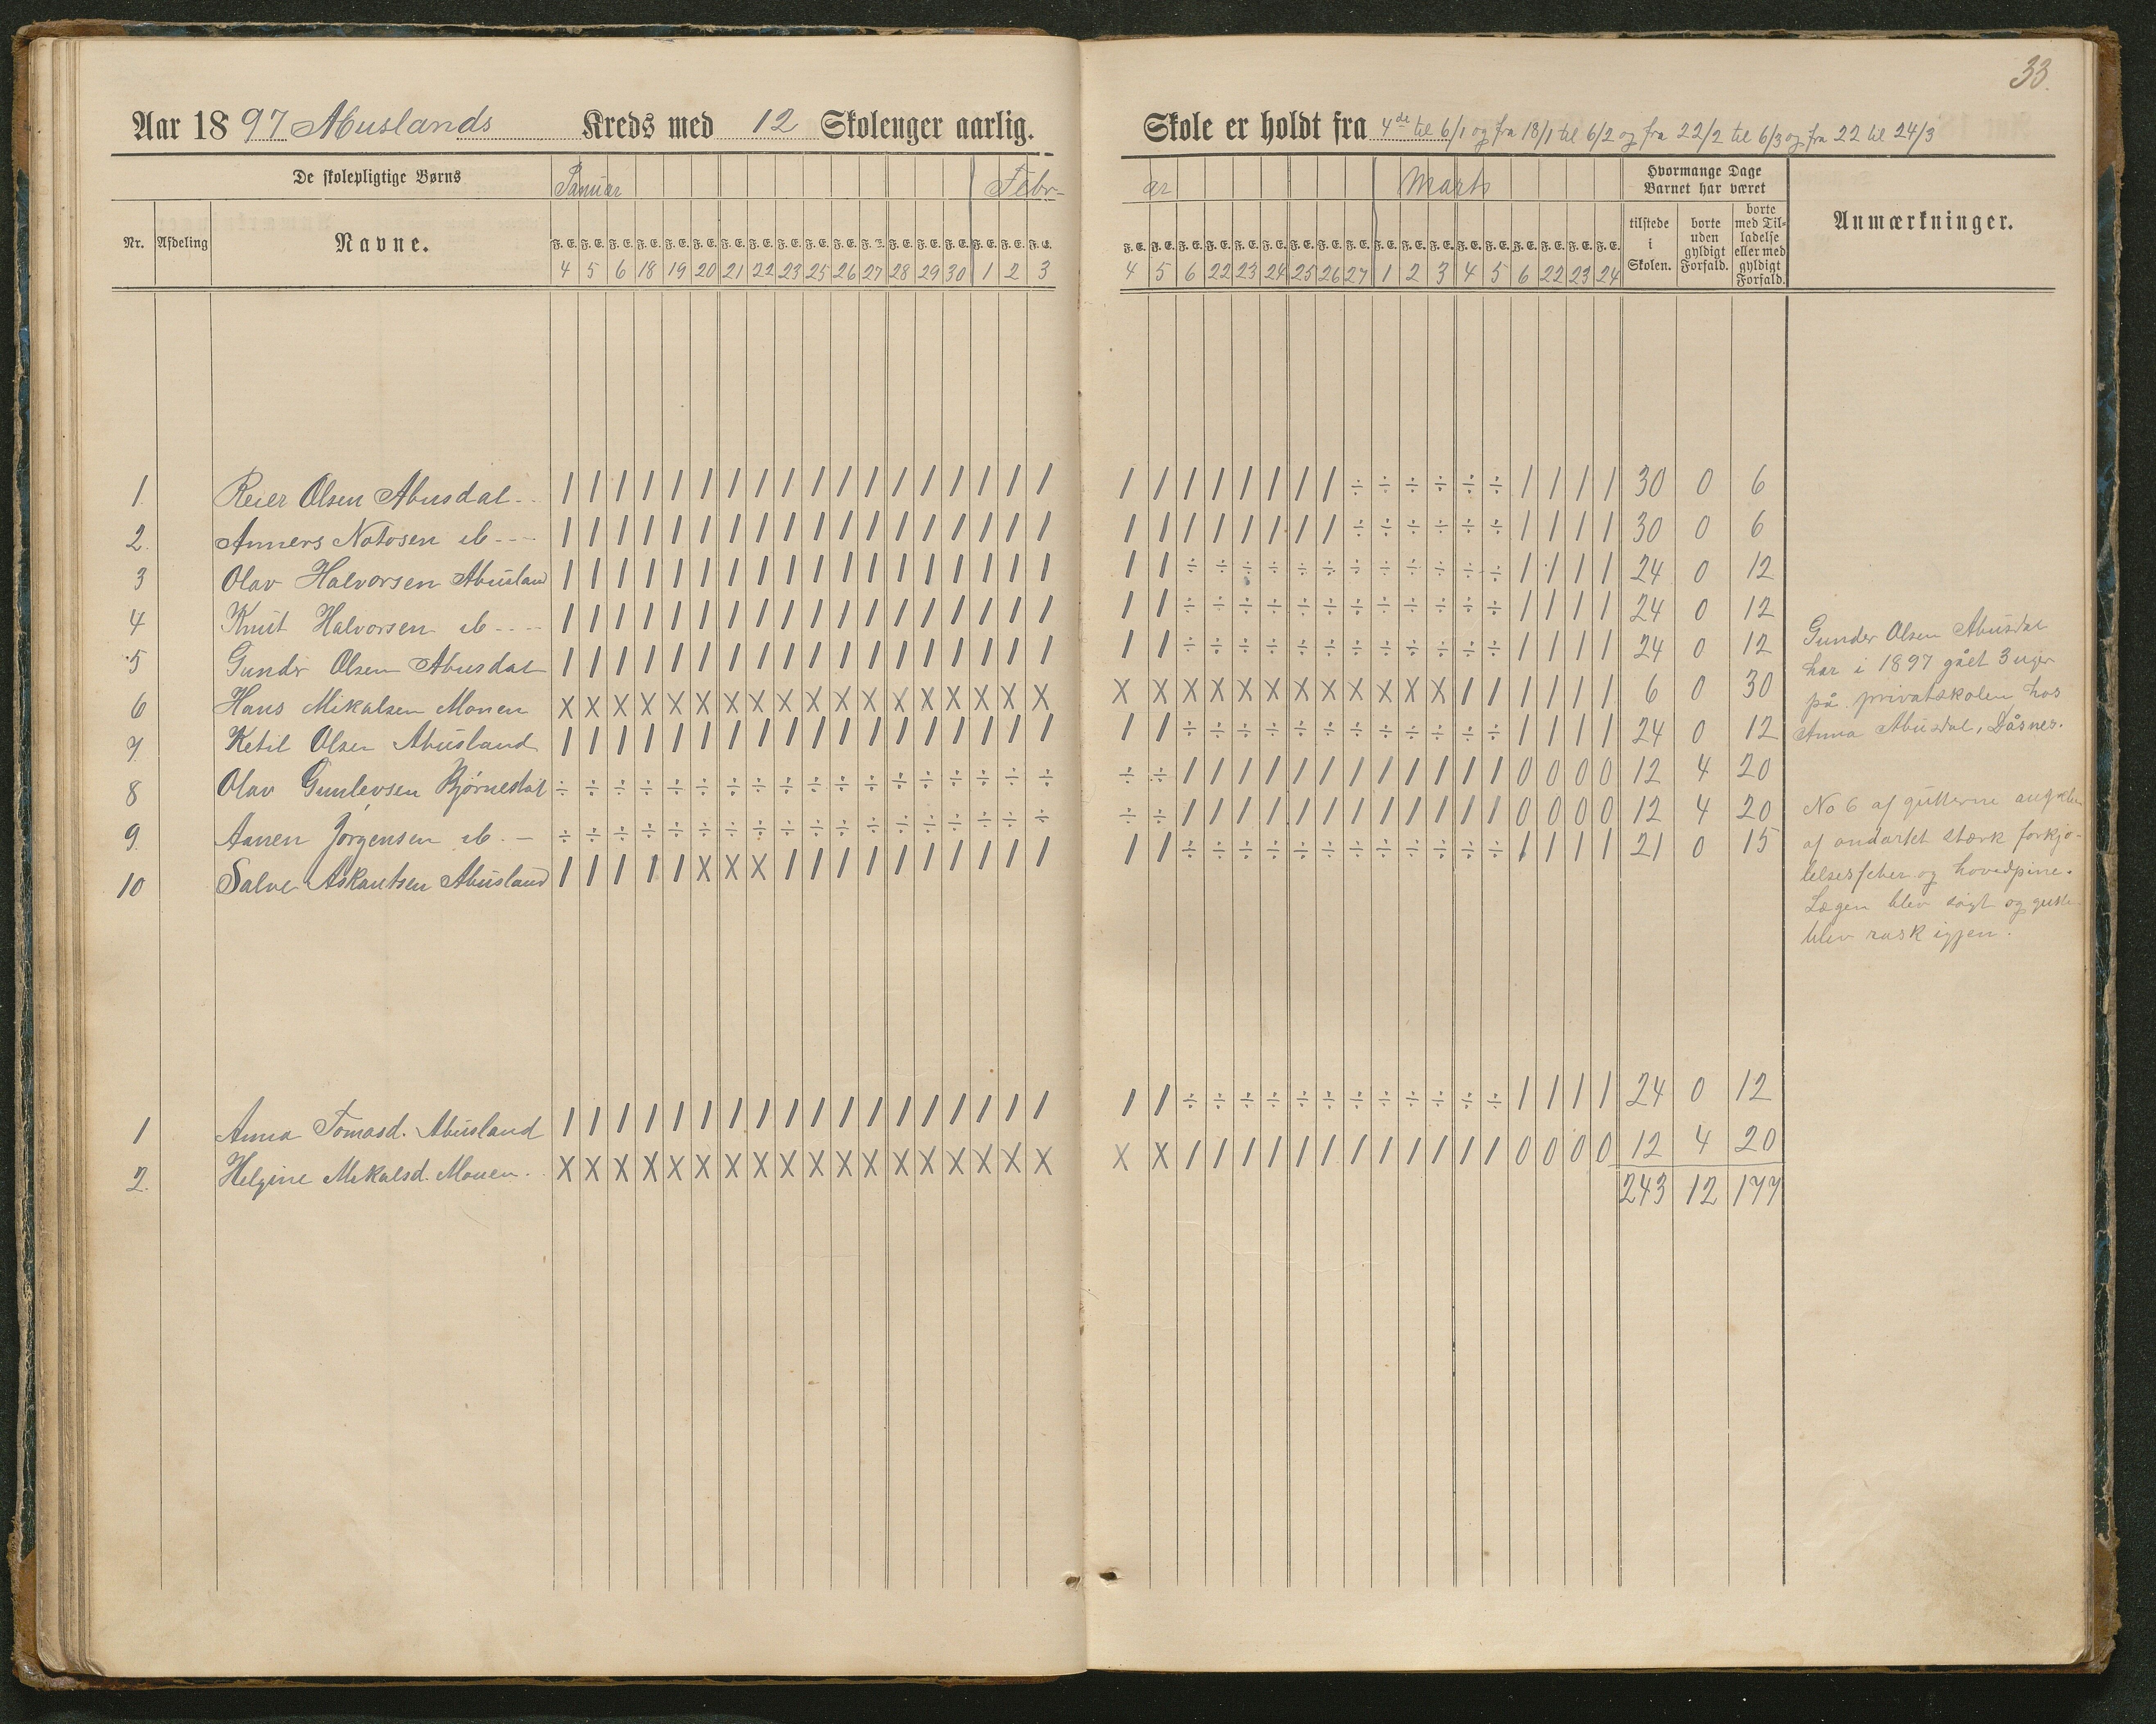 33.
Aar 1897 Abuslands Kreds med 12 Skoleuger aarlig.
Skole er holdt fra 4de til 6/1 og fra 18/1 til 6/2 og fra 22/2 til 6/3 og fra 22 til 24/3
De skolepligtige Børns Januar Febr-
ar Marts Hvormange Dage Barnet har været
Nr. Afdeling Navne. F. E. F. E. F. E. F. E. F. E. F. E. F. E. F. E. F. E. F. E. F. E. F. E. F. E. F. E. F. E. F. E. F. E. F. E.
4 5 6 18 19 20 21 22 23 25 26 27 28 29 30 1 2 3
F. E. F. E. F. E. F. E. F. E. F. E. F. E. F. E. F. E. F. E. F. E. F. E. F. E. F. E. F. E. F. E. F. E. F. E.
4 5 6 22 23 24 25 26 27 1 2 3 4 5 6 22 23 24
tilstede i Skolen. borte uden gyldigt Forfald. borte med Tilladelse eller med gyldigt Forfald. Anmærkninger.
1. Reier Olsen Abusdal - - | | | | | | | | | | | | | | | | | | | | | | | | | | ÷ ÷ ÷ ÷ ÷ ÷ | | | | 30 0 6
2. Anners Notosen ib - - - | | | | | | | | | | | | | | | | | | | | | | | | | | ÷ ÷ ÷ ÷ ÷ ÷ | | | | 30 0 6
3 Olav Halvorsen Abusland | | | | | | | | | | | | | | | | | | | | ÷ ÷ ÷ ÷ ÷ ÷ ÷ ÷ ÷ ÷ ÷ ÷ | | | | 24 0 12
4 Knut Halvorsen ib - - - | | | | | | | | | | | | | | | | | | | | ÷ ÷ ÷ ÷ ÷ ÷ ÷ ÷ ÷ ÷ ÷ ÷ | | | | 24 0 12
5 Gundr Olsen Abusdal | | | | | | | | | | | | | | | | | | | | ÷ ÷ ÷ ÷ ÷ ÷ ÷ ÷ ÷ ÷ ÷ ÷ | | | | 24 0 12
6 Hans Mikalsen Monen X X X X X X X X X X X X X X X X X X X X X X X X X X X X X X | | | | | | 6 0 30
7. Ketil Olsen Abusland | | | | | | | | | | | | | | | | | | | | ÷ ÷ ÷ ÷ ÷ ÷ ÷ ÷ ÷ ÷ ÷ ÷ | | | | 24 0 12
8 Olav Gunlevsen Bjørnestøl ÷ ÷ ÷ ÷ ÷ ÷ ÷ ÷ ÷ ÷ ÷ ÷ ÷ ÷ ÷ ÷ ÷ ÷ ÷ ÷ | | | | | | | | | | | | 0 0 0 0 12 4 20
9. Aanen Jørgensen ib. - ÷ ÷ ÷ ÷ ÷ ÷ ÷ ÷ ÷ ÷ ÷ ÷ ÷ ÷ ÷ ÷ ÷ ÷ ÷ ÷ | | | | | | | | | | | | 0 0 0 0 12 4 20
10 Salve Askautsen Abusland | | | | | X X X | | | | | | | | | | | | ÷ ÷ ÷ ÷ ÷ ÷ ÷ ÷ ÷ ÷ ÷ ÷ | | | | 21 0 15
Gunder Olsen Abusdal
har i 1897 gået 3 uger
på privatskolen hos
Anna Abusdal, Dåsnes.
No 6 af gutterne
af ondartet stærk forkjø-
lelsesfeber og hovedpine.
Lægen blev søgt og
blev rask igjen.
1 Anna Tomasd. Abusland | | | | | | | | | | | | | | | | | | | | ÷ ÷ ÷ ÷ ÷ ÷ ÷ ÷ ÷ ÷ ÷ ÷ | | | | 24 0 12
2. Helgine Mikalsd. Monen. X X X X X X X X X X X X X X X X X X X X | | | | | | | | | | | | 0 0 0 0 12 4 20
243 12 177